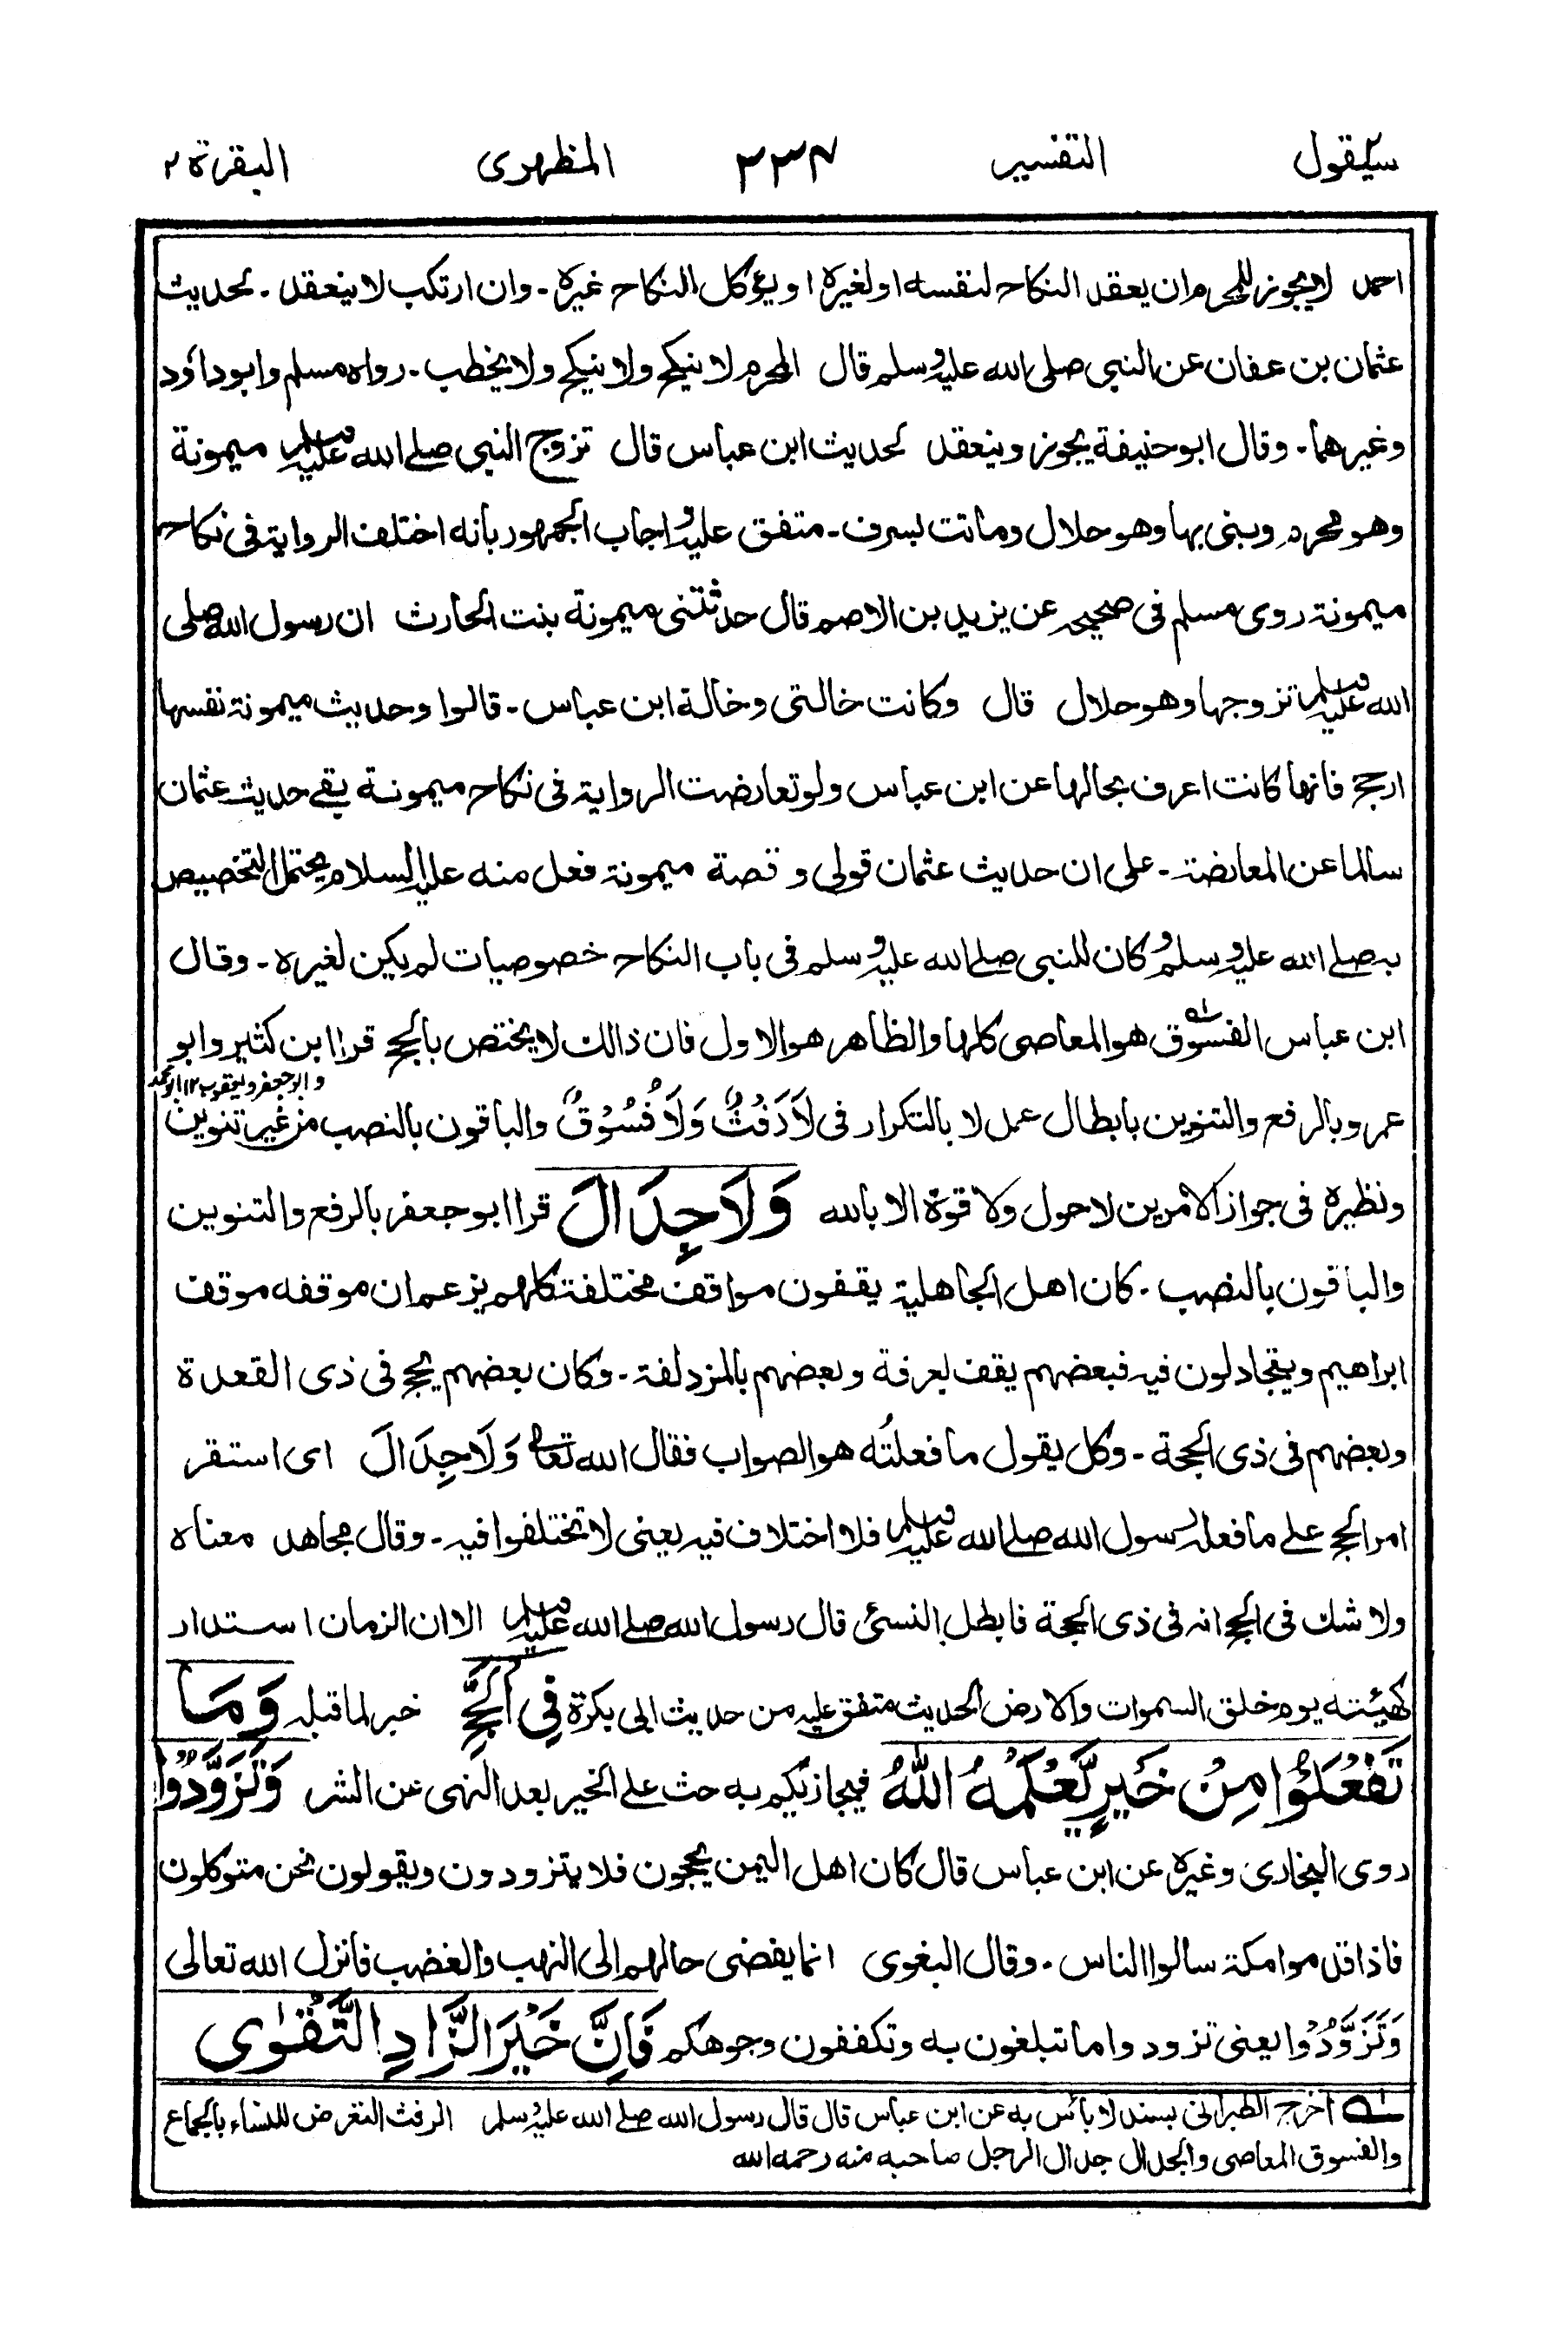 سيقول ٢ التفسير ٢٣٤ المظهرى البقرة ٢
احمد لا يجوز للمحرم ان يعقد النكاح لنفسه او لغيره او يؤكل النكاح غيره - وان ارتكب لا ينعقد - لحديث
عثمان بن عفان عن النبى صلى الله عليه وسلم قال المحرم لا ينكح ولا ينكح ولا يخطب - رواه مسلم وابو داؤد
وغيرهما - وقال ابو حنيفة يجوز وينعقد لحديث ابن عباس قال تزوج النبى صلے الله عليه وسلم ميمونة
وهو محرم وبنى بها وهو حلال وماتت بسرف - متفق عليه واجاب الجمهور بانه اختلف الرواية فى نكاح
ميمونة روى مسلم فى صحيحه عن يزيد بن الاصم قال حدثتنى ميمونة بنت الحارث ان رسول الله صلى
الله عليه وسلم تزوجها وهو حلال قال وكانت خالتى وخالة ابن عباس - قالوا وحديث ميمونة نفسها
ارجح فانها كانت اعرف بحالها عن ابن عباس ولو تعارضت الرواية فى نكاح ميمونة بقے حديث عثمان
سالما عن المعارضة - على ان حديث عثمان قولى وقصة ميمونة فعل منه عليه السلام يحتمل التخصيص
به صلے الله عليه وسلم وكان للنبى صلے الله عليه وسلم فى باب النكاح خصوصيات لم يكن لغيره - وقال
ابن عباس الفسوق له هو المعاصى كلها والظاهر هو الاول فان ذالك لا يختص بالحج قرا ابن كثير وابو
وابو جعفر ويعقوب ١٢ ابو محمد
عمرو بالرفع والتنوين بابطال عمل لا بالتكرار فى لَا رَفَثٌ وَلَا فُسُوْقٌ والباقون بالنصب من غير تنوين
ونظيره فى جواز الامرين لا حول ولا قوة الا بالله وَلَا جِدَالَ قرا ابو جعفر بالرفع والتنوين
والباقون بالنصب - كان اهل الجاهلية يقفون مواقف مختلفة كلهم يزعم ان موقفه موقف
ابراهيم ويتجادلون فيه فبعضهم يقف بعرفة وبعضهم بالمزدلفة - وكان بعضهم يحج فى ذى القعدة
وبعضهم فى ذى الحجة - وكل يقول ما فعلتُه هو الصواب فقال الله تعالے وَلَا جِدَالَ اى استقر
امر الحج علے ما فعله رسول الله صلے الله عليه وسلم فلا اختلاف فيه يعنى لا تختلفوا فيه - وقال مجاهد معناه
ولا شك فى الحج انه فى ذى الحجة فابطل النسئ قال رسول الله صلے الله عليه وسلم الا ان الزمان استدار
كهيئته يوم خلق السموات والارض الحديث متفق عليه من حديث ابى بكرة فِي الْحَجِّ خبر لما قبله وَمَا
تَفْعَلُوْا مِنْ خَيْرٍ يَّعْلَمْهُ اللّٰهُ فيجازيكم به حث على الخير بعد النهى عن الشر وَتَزَوَّدُوْا
روى البخارى وغيره عن ابن عباس قال كان اهل اليمن يحجون فلا يتزودون ويقولون نحن متوكلون
فاذا قدموا مكة سالوا الناس - وقال البغوى انما يفضى حالهم الى النهب والغضب فانزل الله تعالى
وَتَزَوَّدُوْا يعنى تزودوا ما تبلغون به وتكففون وجوهكم فَاِنَّ خَيْرَ الزَّادِ التَّقْوٰى
له اخرج الطبرانى بسند لا باس به عن ابن عباس قال قال رسول الله صلے الله عليه وسلم الرفث التعرض للنساء بالجماع
والفسوق المعاصى والجدال جدال الرجل صاحبه منه رحمه الله